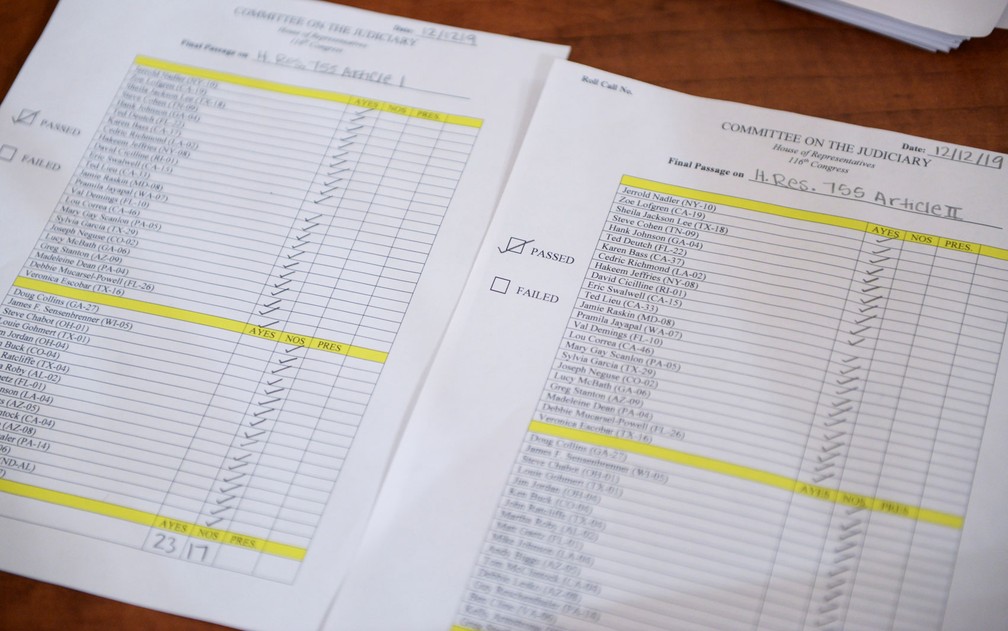 COMMITTEE ON THE JUDICIARY
House of Representatives
116th Congress
Date: 12/12/19
Final Passage on H. Res. 755 Article I
PASSED
FAILED
AYES NOS PRES.
Jerrold Nadler (NY-10)
Zoe Lofgren (CA-19)
Sheila Jackson Lee (TX-18)
Steve Cohen (TN-09)
Hank Johnson (GA-04)
Ted Deutch (FL-22)
Karen Bass (CA-37)
Cedric Richmond (LA-02)
Hakeem Jeffries (NY-08)
David Cicilline (RI-01)
Eric Swalwell (CA-15)
Ted Lieu (CA-33)
Jamie Raskin (MD-08)
Pramila Jayapal (WA-07)
Val Demings (FL-10)
Lou Correa (CA-46)
Mary Gay Scanlon (PA-05)
Sylvia Garcia (TX-29)
Joseph Neguse (CO-02)
Lucy McBath (GA-06)
Greg Stanton (AZ-09)
Madeleine Dean (PA-04)
Debbie Mucarsel-Powell (FL-26)
Veronica Escobar (TX-16)
AYES NOS PRES
Doug Collins (GA-27)
James F. Sensenbrenner (WI-05)
Steve Chabot (OH-01)
Louie Gohmert (TX-01)
m Jordan (OH-04)
n Buck (CO-04)
Ratcliffe (TX-04)
a Roby (AL-02)
aetz (FL-01)
nson (LA-04)
s (AZ-05)
ntock (CA-04)
(AZ-08)
aler (PA-14)
06)
ND-AL)
AYES NOS PRES.
23 17
Roll Call No.
COMMITTEE ON THE JUDICIARY
House of Representatives
116th Congress
Date: 12/12/19
Final Passage on H. Res. 755 Article II
PASSED
FAILED
AYES NOS PRES.
Jerrold Nadler (NY-10)
Zoe Lofgren (CA-19)
Sheila Jackson Lee (TX-18)
Steve Cohen (TN-09)
Hank Johnson (GA-04)
Ted Deutch (FL-22)
Karen Bass (CA-37)
Cedric Richmond (LA-02)
Hakeem Jeffries (NY-08)
David Cicilline (RI-01)
Eric Swalwell (CA-15)
Ted Lieu (CA-33)
Jamie Raskin (MD-08)
Pramila Jayapal (WA-07)
Val Demings (FL-10)
Lou Correa (CA-46)
Mary Gay Scanlon (PA-05)
Sylvia Garcia (TX-29)
Joseph Neguse (CO-02)
Lucy McBath (GA-06)
Greg Stanton (AZ-09)
Madeleine Dean (PA-04)
Debbie Mucarsel-Powell (FL-26)
Veronica Escobar (TX-16)
AYES NOS PRES.
Doug Collins (GA-27)
James F. Sensenbrenner (WI-05)
Steve Chabot (OH-01)
Louie Gohmert (TX-01)
Jim Jordan (OH-04)
Ken Buck (CO-04)
John Ratcliffe (TX-04)
Martha Roby (AL-02)
Matt Gaetz (FL-01)
Mike Johnson (LA-04)
Andy Biggs (AZ-05)